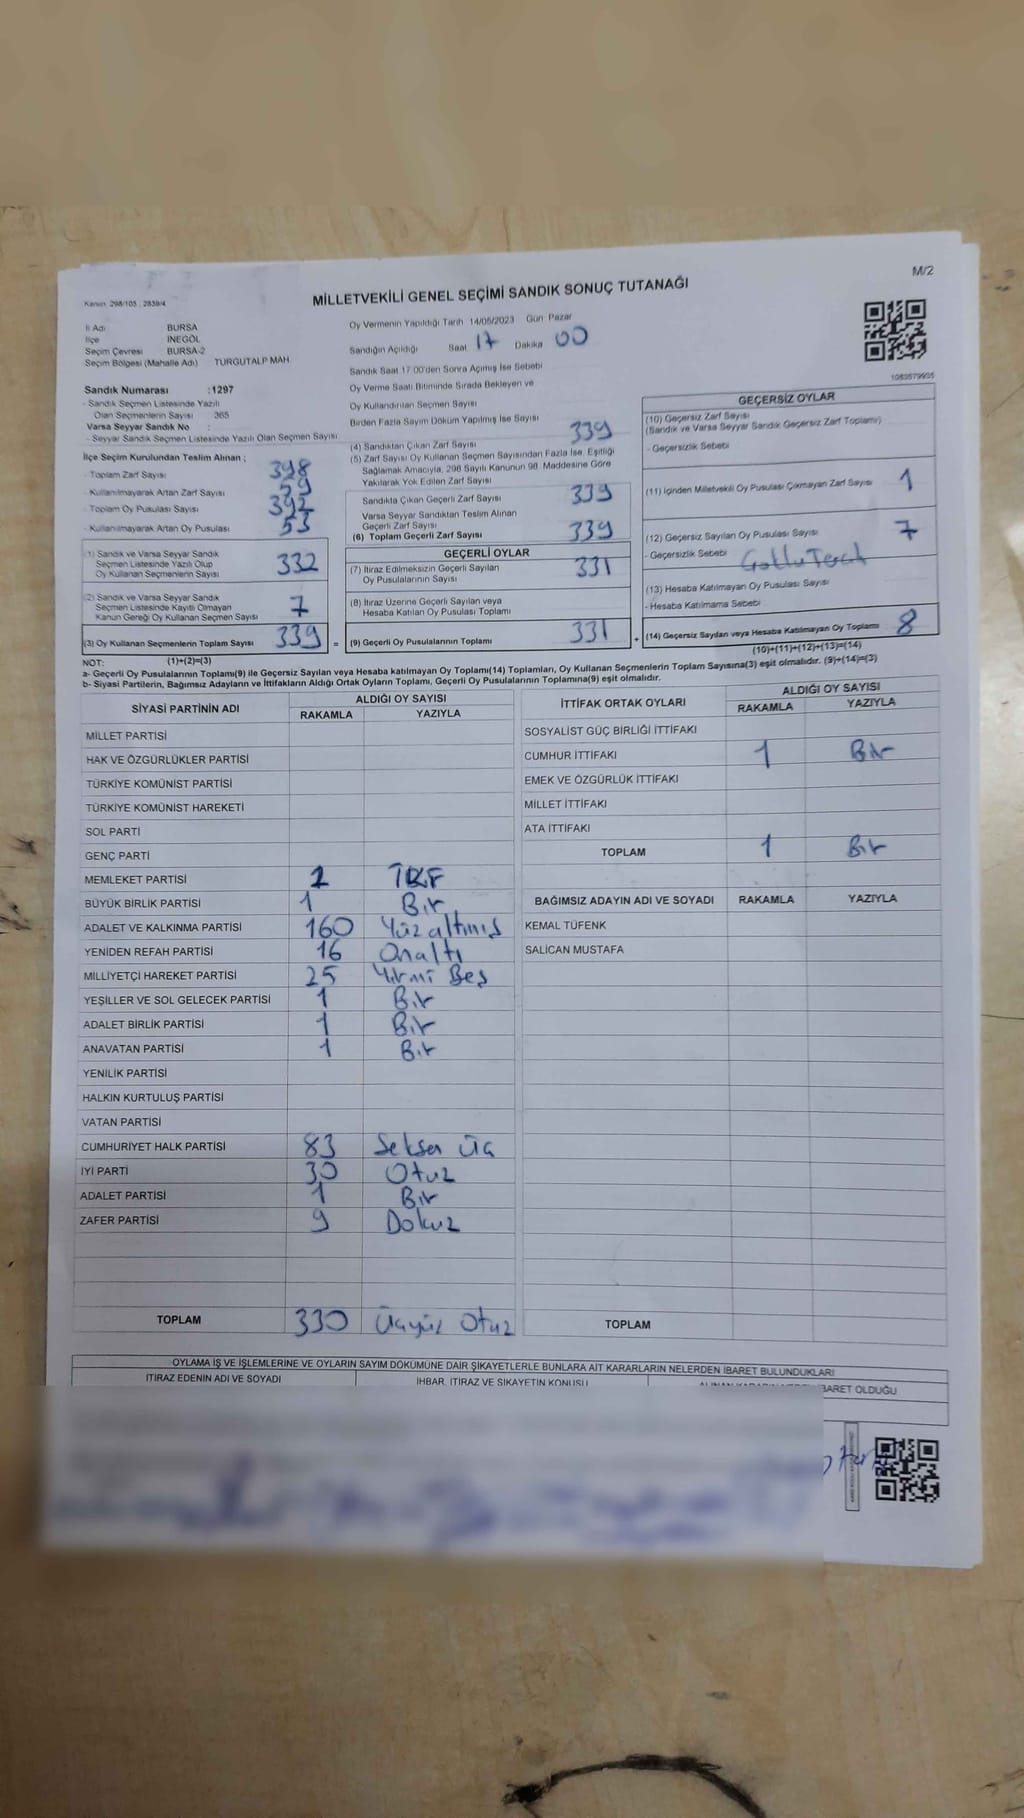 M/2
MİLLETVEKİLİ GENEL SEÇİMİ SANDIK SONUÇ TUTANAĞI
Kanun: 298/105 ; 2839/4
İl Adı BURSA
İlçe İNEGÖL
Seçim Çevresi BURSA-2
Seçim Bölgesi (Mahalle Adı) TURGUTALP MAH.
Sandık Numarası :1297
- Sandık Seçmen Listesinde Yazılı
Olan Seçmenlerin Sayısı : 365
Varsa Seyyar Sandık No :
- Seyyar Sandık Seçmen Listesinde Yazılı Olan Seçmen Sayısı:
İlçe Seçim Kurulundan Teslim Alınan ;
- Toplam Zarf Sayısı 398
- Kullanılmayarak Artan Zarf Sayısı 59
- Toplam Oy Pusulası Sayısı 392
- Kullanılmayarak Artan Oy Pusulası 53
(1) Sandık ve Varsa Seyyar Sandık
Seçmen Listesinde Yazılı Olup
Oy Kullanan Seçmenlerin Sayısı 332
(2) Sandık ve Varsa Seyyar Sandık
Seçmen Listesinde Kayıtlı Olmayan
Kanun Gereği Oy Kullanan Seçmen Sayısı 7
(3) Oy Kullanan Seçmenlerin Toplam Sayısı 339 =
(1)+(2)=(3)
Oy Vermenin Yapıldığı Tarih 14/05/2023 Gün Pazar
Sandığın Açıldığı Saat 17 Dakika 00
Sandık Saat 17:00'den Sonra Açılmış İse Sebebi
Oy Verme Saati Bitiminde Sırada Bekleyen ve
Oy Kullandırılan Seçmen Sayısı
Birden Fazla Sayım Döküm Yapılmış İse Sayısı
(4) Sandıktan Çıkan Zarf Sayısı 339
(5) Zarf Sayısı Oy Kullanan Seçmen Sayısından Fazla İse, Eşitliği
Sağlamak Amacıyla, 298 Sayılı Kanunun 98. Maddesine Göre
Yakılarak Yok Edilen Zarf Sayısı
Sandıkta Çıkan Geçerli Zarf Sayısı 339
Varsa Seyyar Sandıktan Teslim Alınan
Geçerli Zarf Sayısı
(6) Toplam Geçerli Zarf Sayısı 339
GEÇERLİ OYLAR
(7) İtiraz Edilmeksizin Geçerli Sayılan
Oy Pusulalarının Sayısı 331
(8) İtiraz Üzerine Geçerli Sayılan veya
Hesaba Katılan Oy Pusulası Toplamı
(9) Geçerli Oy Pusulalarının Toplamı 331 +
1083579935
GEÇERSİZ OYLAR
(10) Geçersiz Zarf Sayısı
(Sandık ve Varsa Seyyar Sandık Geçersiz Zarf Toplamı)
- Geçersizlik Sebebi
(11) İçinden Milletvekili Oy Pusulası Çıkmayan Zarf Sayısı 1
(12) Geçersiz Sayılan Oy Pusulası Sayısı 7
- Geçersizlik Sebebi
(13) Hesaba Katılmayan Oy Pusulası Sayısı
- Hesaba Katılmama Sebebi
(14) Geçersiz Sayılan veya Hesaba Katılmayan Oy Toplamı 8
(10)+(11)+(12)+(13)=(14)
NOT:
a- Geçerli Oy Pusulalarının Toplamı(9) ile Geçersiz Sayılan veya Hesaba katılmayan Oy Toplamı(14) Toplamları, Oy Kullanan Seçmenlerin Toplam Sayısına(3) eşit olmalıdır. (9)+(14)=(3)
b- Siyasi Partilerin, Bağımsız Adayların ve İttifakların Aldığı Ortak Oyların Toplamı, Geçerli Oy Pusulalarının Toplamına(9) eşit olmalıdır.
SİYASİ PARTİNİN ADI ALDIĞI OY SAYISI
RAKAMLA YAZIYLA
MİLLET PARTİSİ
HAK VE ÖZGÜRLÜKLER PARTİSİ
TÜRKİYE KOMÜNİST PARTİSİ
TÜRKİYE KOMÜNİST HAREKETİ
SOL PARTİ
GENÇ PARTİ
MEMLEKET PARTİSİ
BÜYÜK BİRLİK PARTİSİ 1 Bir
ADALET VE KALKINMA PARTİSİ 160 Yüzaltmış
YENİDEN REFAH PARTİSİ 16 Onaltı
MİLLİYETÇİ HAREKET PARTİSİ 25 Yirmi Beş
YEŞİLLER VE SOL GELECEK PARTİSİ 1 Bir
ADALET BİRLİK PARTİSİ 1 Bir
ANAVATAN PARTİSİ 1 Bir
YENİLİK PARTİSİ
HALKIN KURTULUŞ PARTİSİ
VATAN PARTİSİ
CUMHURİYET HALK PARTİSİ 83 Seksen üç
İYİ PARTİ 30 Otuz
ADALET PARTİSİ 1 Bir
ZAFER PARTİSİ 9 Dokuz
TOPLAM 330 Üçyüz Otuz
İTTİFAK ORTAK OYLARI ALDIĞI OY SAYISI
RAKAMLA YAZIYLA
SOSYALİST GÜÇ BİRLİĞİ İTTİFAKI
CUMHUR İTTİFAKI 1 Bir
EMEK VE ÖZGÜRLÜK İTTİFAKI
MİLLET İTTİFAKI
ATA İTTİFAKI
TOPLAM 1 Bir
BAĞIMSIZ ADAYIN ADI VE SOYADI RAKAMLA YAZIYLA
KEMAL TÜFENK
SALİCAN MUSTAFA
TOPLAM
OYLAMA İŞ VE İŞLEMLERİNE VE OYLARIN SAYIM DÖKÜMÜNE DAİR ŞİKAYETLERLE BUNLARA AİT KARARLARIN NELERDEN İBARET BULUNDUKLARI
İTİRAZ EDENİN ADI VE SOYADI İHBAR, İTİRAZ VE ŞİKAYETİN KONUSU BARET OLDUĞU